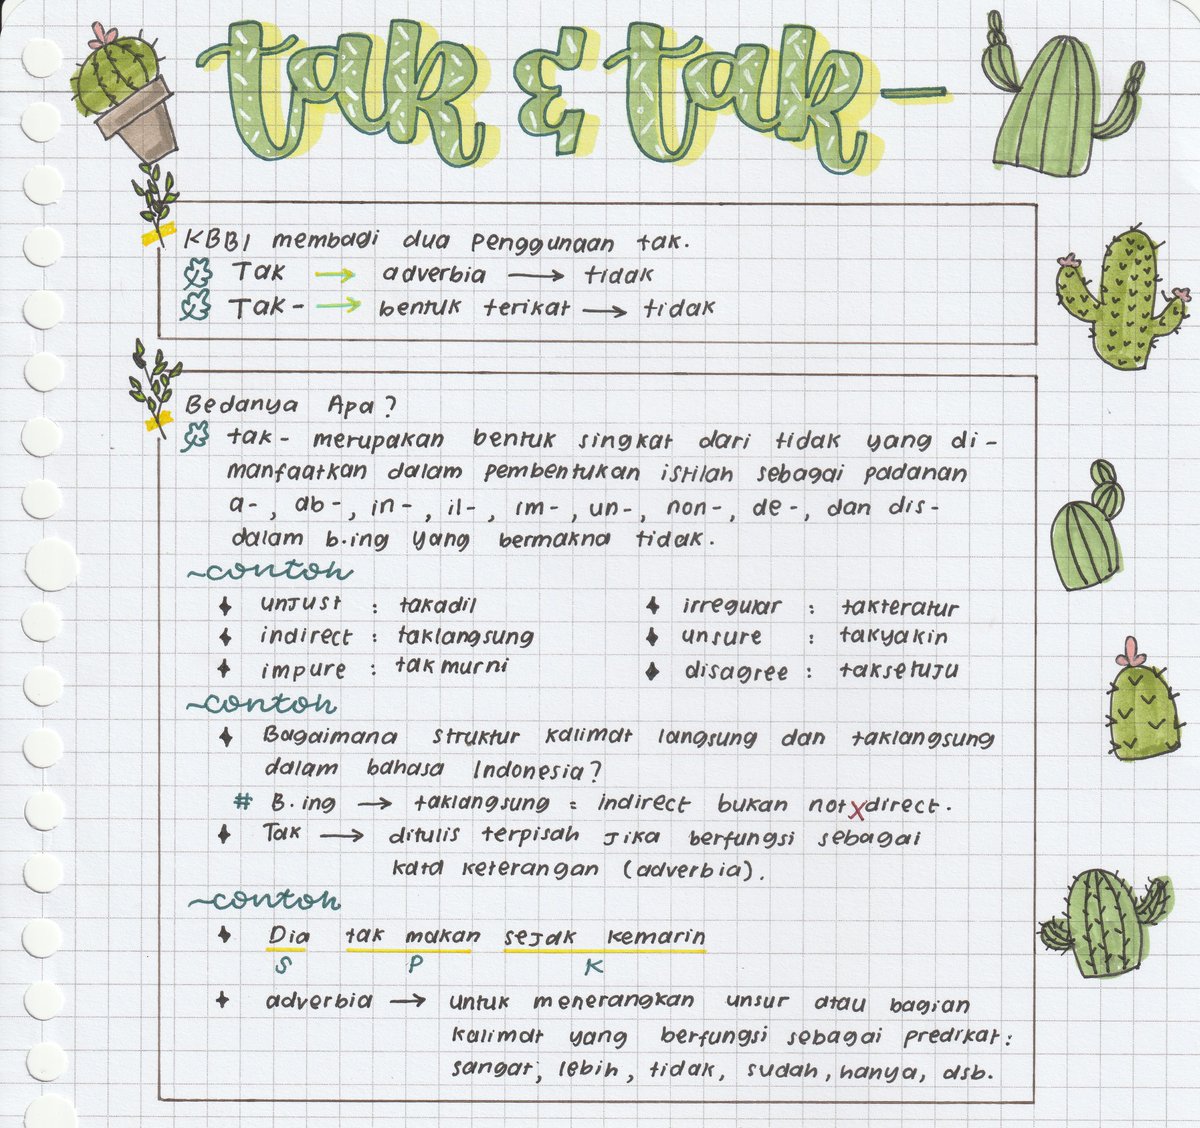 tak & tak-
KBBI membagi dua penggunaan tak.
Tak → adverbia → tidak
Tak- → bentuk terikat → tidak
Bedanya Apa?
tak- merupakan bentuk singkat dari tidak yang di-
manfaatkan dalam pembentukan istilah sebagai padanan
a-, ab-, in-, il-, im-, un-, non-, de-, dan dis-
dalam b.ing yang bermakna tidak.
~contoh
unjust : takadil
irregular : takteratur
indirect : taklangsung
unsure : takyakin
impure : takmurni
disagree : taksetuju
~contoh
Bagaimana struktur kalimat langsung dan taklangsung
dalam bahasa Indonesia?
# B.ing → taklangsung = indirect bukan not x direct.
Tak → ditulis terpisah jika berfungsi sebagai
kata keterangan (adverbia).
~contoh
Dia tak makan sejak kemarin
S P K
adverbia → untuk menerangkan unsur atau bagian
kalimat yang berfungsi sebagai predikat:
sangat, lebih, tidak, sudah, hanya, dsb.